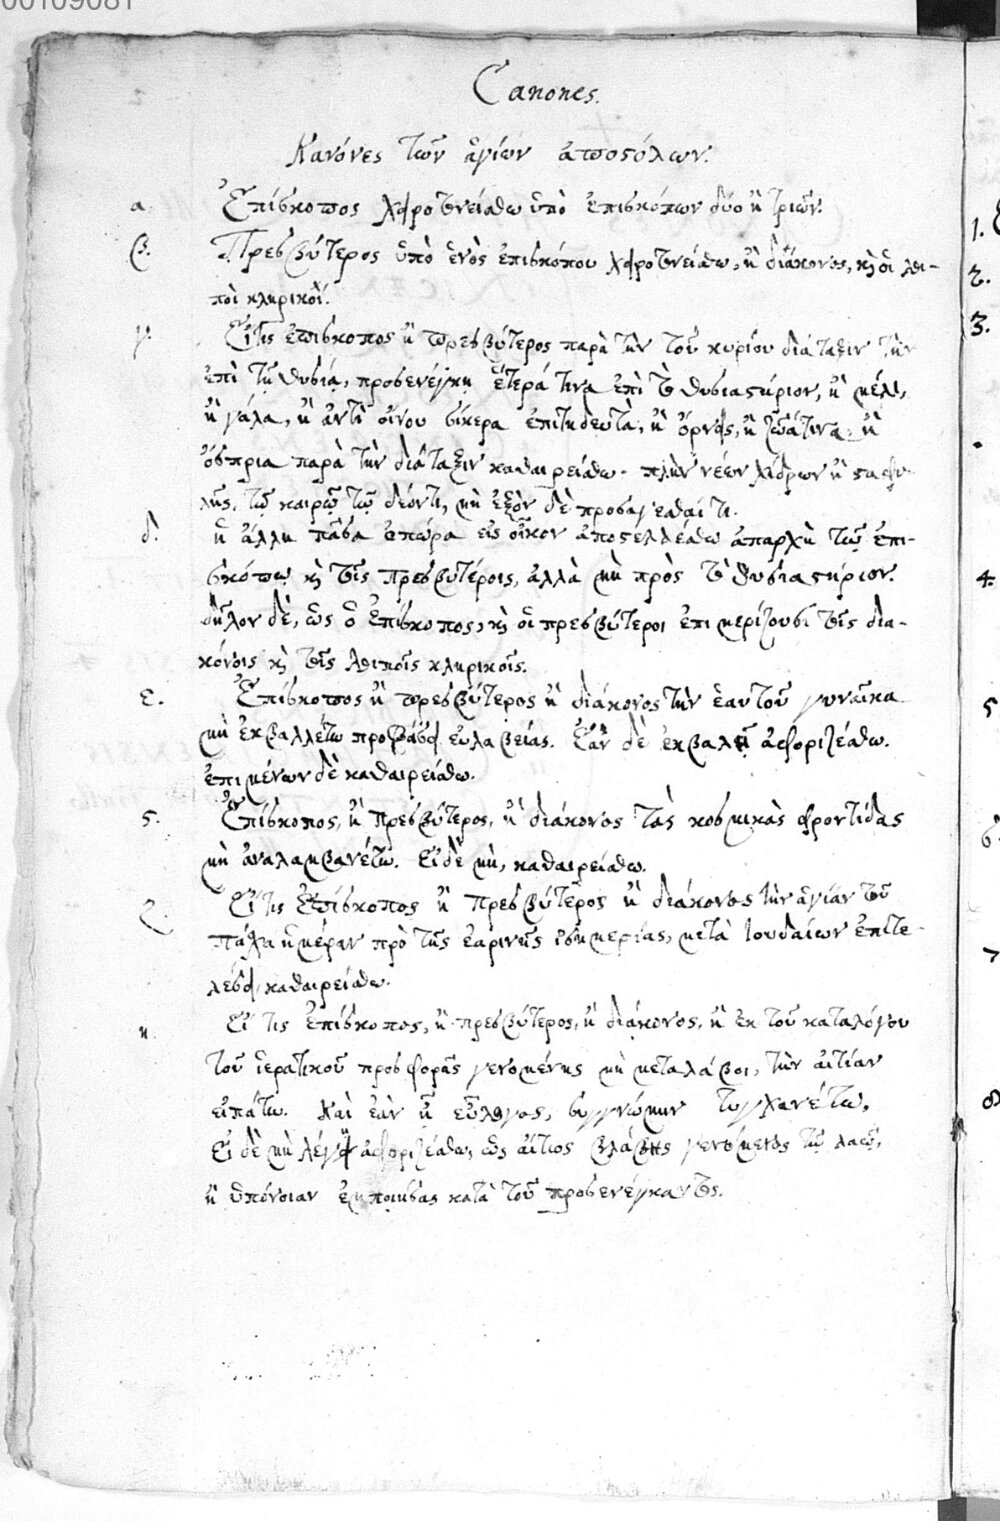 00109081
Canones.
Κανόνες τῶν ἁγίων ἀποστόλων.
α. Ἐπίσκοπος χειροτονείσθω ὑπὸ ἐπισκόπων δύο ἢ τριῶν.
β. Πρεσβύτερος ὑπὸ ἑνὸς ἐπισκόπου χειροτονείσθω, ἢ διάκονος, καὶ οἱ λοι-
ποὶ κληρικοί.
γ. Εἴ τις ἐπίσκοπος ἢ πρεσβύτερος παρὰ τὴν τοῦ κυρίου διάταξιν τὴν
ἐπὶ τῇ θυσίᾳ, προσενέγκῃ ἕτερά τινα ἐπὶ τὸ θυσιαστήριον, ἢ μέλι,
ἢ γάλα, ἢ ἀντὶ οἴνου σίκερα ἐπιτηδευτὰ, ἢ ὄρνεις, ἢ ζῶάτινα, ἢ
ὄσπρια παρὰ τὴν διάταξιν καθαιρείσθω. πλὴν νέων χίδρων ἢ σταφυ-
λῆς, τῷ καιρῷ τῷ δέοντι, μὴ ἐξὸν δὲ προσάγεσθαί τι.
δ. ἡ ἄλλη πᾶσα ὀπώρα εἰς οἶκον ἀποστελλέσθω ἀπαρχὴ τῷ ἐπι-
σκόπῳ καὶ τοῖς πρεσβυτέροις, ἀλλὰ μὴ πρὸς τὸ θυσιαστήριον.
δῆλον δὲ, ὡς ὁ ἐπίσκοπος, καὶ οἱ πρεσβύτεροι ἐπιμερίζουσι τοῖς δια-
κόνοις καὶ τοῖς λοιποῖς κληρικοῖς.
ε. Ἐπίσκοπος ἢ πρεσβύτερος ἢ διάκονος τὴν ἑαυτοῦ γυναῖκα
μὴ ἐκβαλλέτω προφάσει εὐλαβείας. Ἐὰν δὲ ἐκβαλεῖ ἀφοριζέσθω.
ἐπιμένων δὲ καθαιρείσθω.
ς. Ἐπίσκοπος, ἢ πρεσβύτερος, ἢ διάκονος τὰς κοσμικὰς φροντίδας
μὴ ἀναλαμβανέτω. Εἰ δὲ μὴ, καθαιρείσθω.
ζ. Εἴ τις ἐπίσκοπος ἢ πρεσβύτερος ἢ διάκονος τὴν ἁγίαν τοῦ
πάσχα ἡμέραν πρὸ τῆς ἐαρινῆς ἰσημερίας, μετὰ Ἰουδαίων ἐπιτε-
λέσει, καθαιρείσθω.
η. Εἴ τις ἐπίσκοπος, ἢ πρεσβύτερος, ἢ διάκονος, ἢ ἐκ τοῦ καταλόγου
τοῦ ἱερατικοῦ προσφορᾶς γενομένης μὴ μεταλάβοι, τὴν αἰτίαν
εἰπάτω. Καὶ ἐὰν ᾖ εὔλογος, συγγνώμην τυγχανέτω.
Εἰ δὲ μὴ λέγει ἀφοριζέσθω, ὡς αἴτιος βλάβης γενόμενος τῷ λαῷ,
ἢ ὑπόνοιαν ἐμποιήσας κατὰ τοῦ προσενέγκαντος.
1.
2.
3.
4.
5
6
7
8